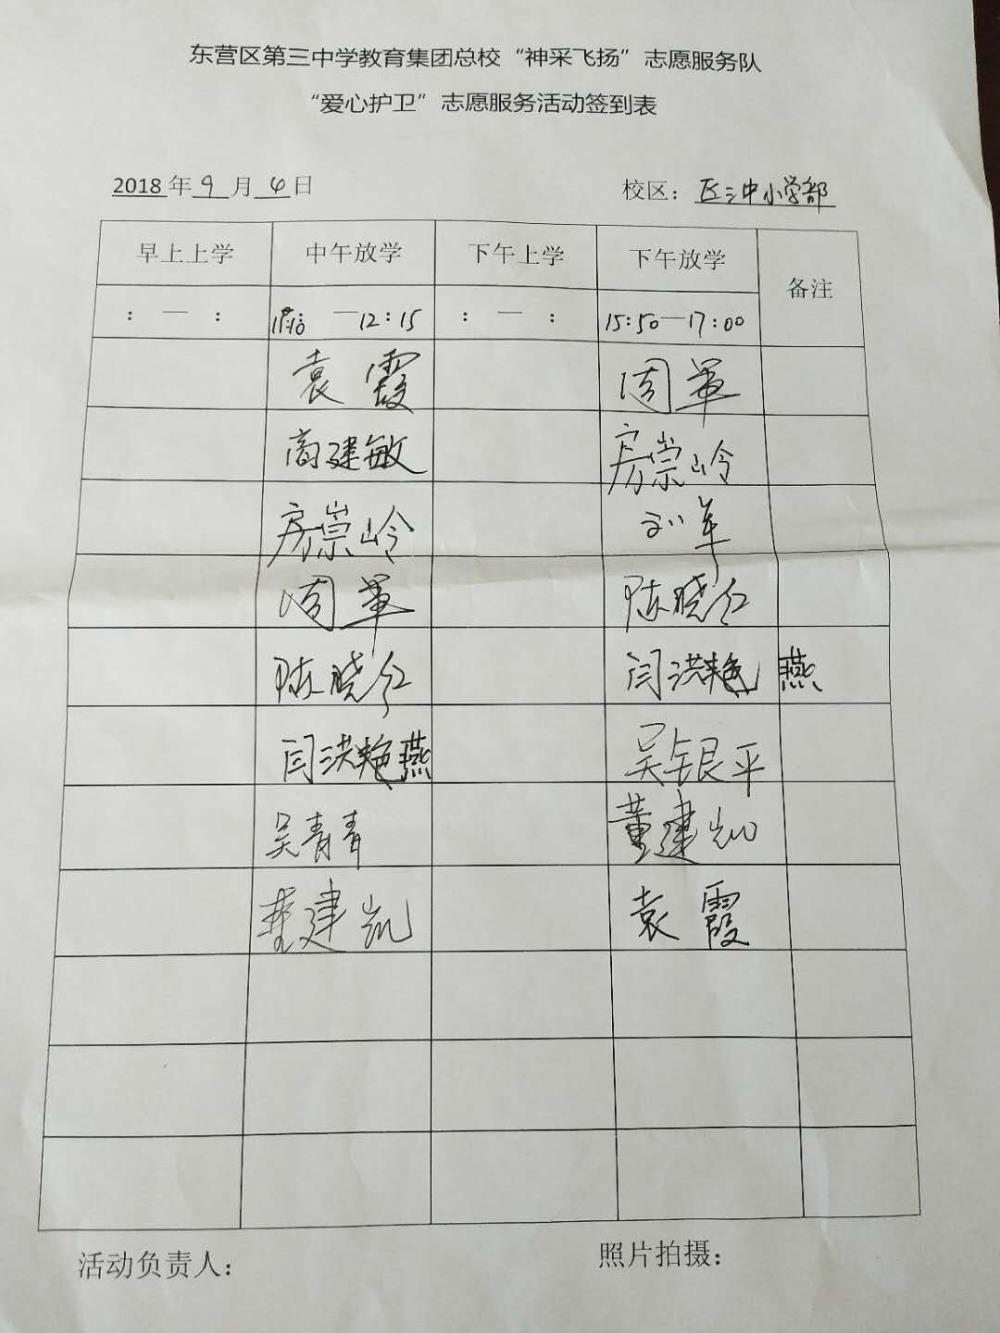 东营区第三中学教育集团总校“神采飞扬”志愿服务队
“爱心护卫”志愿服务活动签到表
2018年9月4日 校区：区三中小学部
早上上学 中午放学 下午上学 下午放学 备注
： — ： 11:10 —12:15 ： — ： 15:50—17:00
袁霞 周军
高建敏 房崇岭
房崇岭 刘军
周军 陈晓红
陈晓红 闫洪艳 燕
闫洪艳燕 吴银平
吴青青 董建凯
董建凯 袁霞
活动负责人： 照片拍摄：